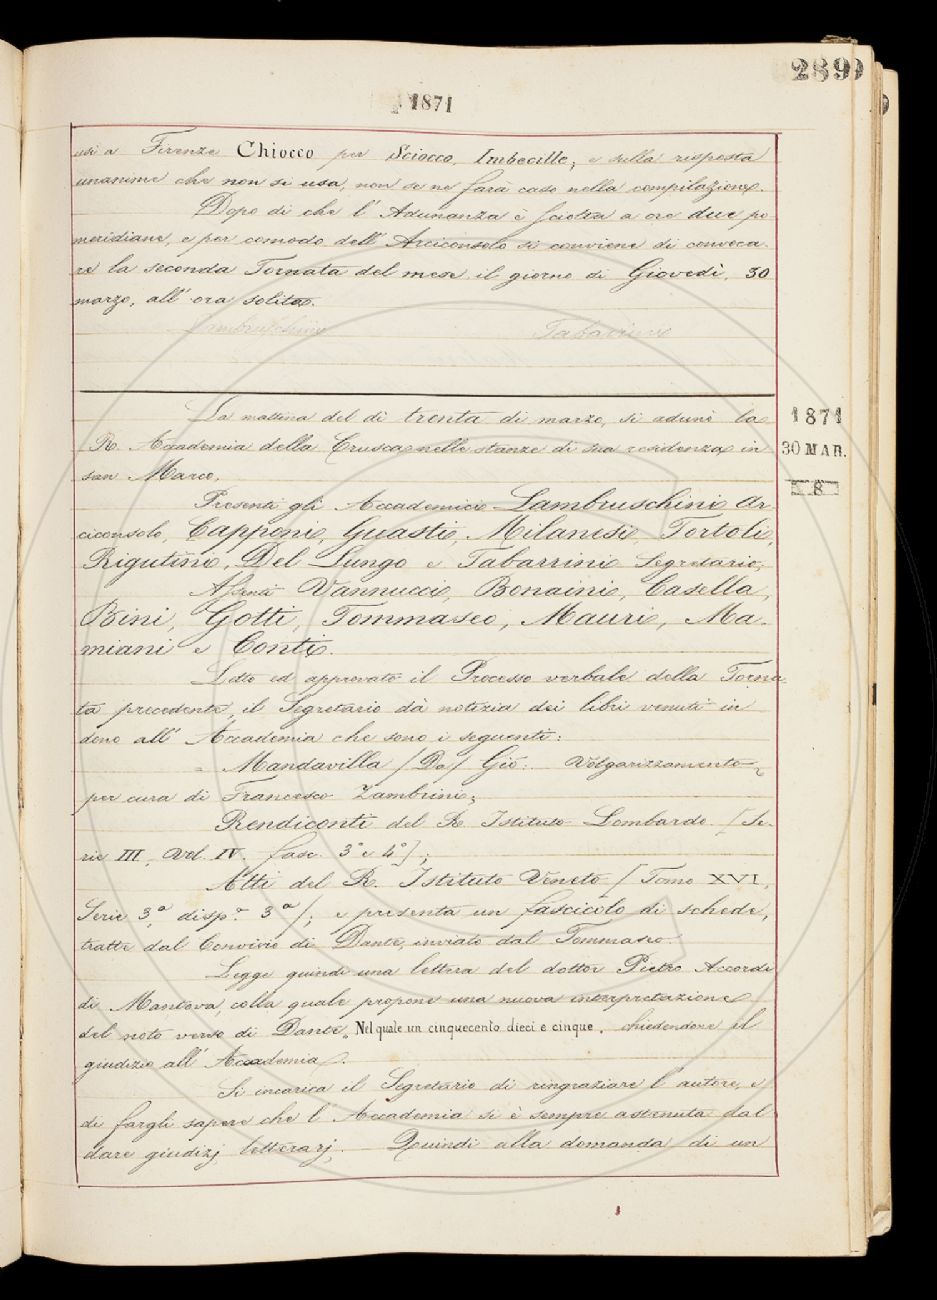 289
1871
usi a Firenze Chiocco per Sciocco, Imbecille; e sulla risposta
unanime che non si usa, non se ne farà caso nella compilazione.
Dopo di che l'Adunanza è sciolta a ore due po
meridiane, e per comodo dell'Arciconsolo si conviene di conveca
re la seconda Tornata del mese il giorno di Giovedì, 30
marzo, all'ora solita.
Lambruschini Tabarrini
La mattina del dì trenta di marzo, si adunò la
R. Accademia della Crusca nelle stanze di sua residenza in
san Marco.
1871
30 MAR.
8
Presenti gli Accademici Lambruschini Ar
ciconsolo, Capponi, Guasti, Milanesi, Tortoli,
Rigutini, Del Lungo e Tabarrini Segretario;
Assenti Vannucci, Bonaini, Casella,
Bini, Gotti, Tommaseo, Mauri, Ma-
miani e Conti.
Letto ed approvato il Processo verbale della Torna-
ta precedente, il Segretario dà notizia dei libri venuti in
dono all'Accademia che sono i seguenti:
Mandavilla (Da) Gio: Volgarizzamento
per cura di Francesco Zambrini;
Rendiconti del R. Istituto Lombardo [Se-
rie III, Vol. IV. fasc. 3° e 4°];
Atti del R. Istituto Veneto (Tomo XVI,
Serie 3ª, dispª 3ª); e presenta un fascicolo di schede,
tratte dal Convivio di Dante, inviato dal Tommaseo.
Legge quindi una lettera del dottor Pietro Accordi
di Mantova, colla quale propone una nuova interpretazione
del noto verso di Dante, Nel quale un cinquecento dieci e cinque, chiedendone il
giudizio all'Accademia.
Si incarica il Segretario di ringraziare l'autore, e
di fargli sapere che l'Accademia si è sempre astenuta dal
dare giudizj letterarj. Quindi alla domanda di un